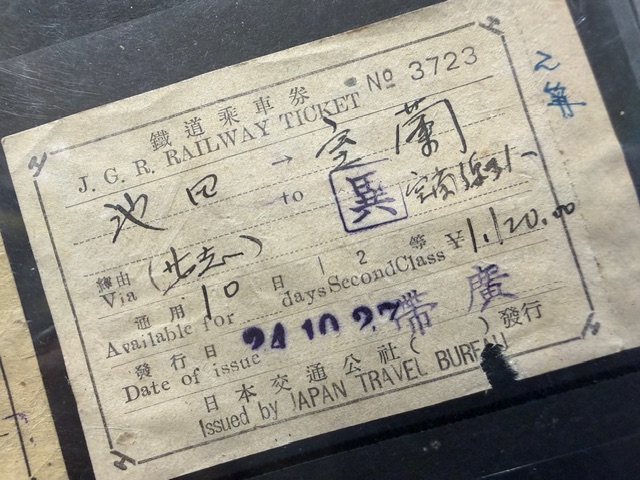 鐵道乘車券 No 3723
J. G. R. RAILWAY TICKET
池田 → 室蘭
to
經由
Via (北志)
通用 10 日 1 2 等 ¥1,120.00
Available for days Second Class
發行日
Date of issue 24.10.27 帶廣
日本交通公社( )發行
Issued by JAPAN TRAVEL BUREAU